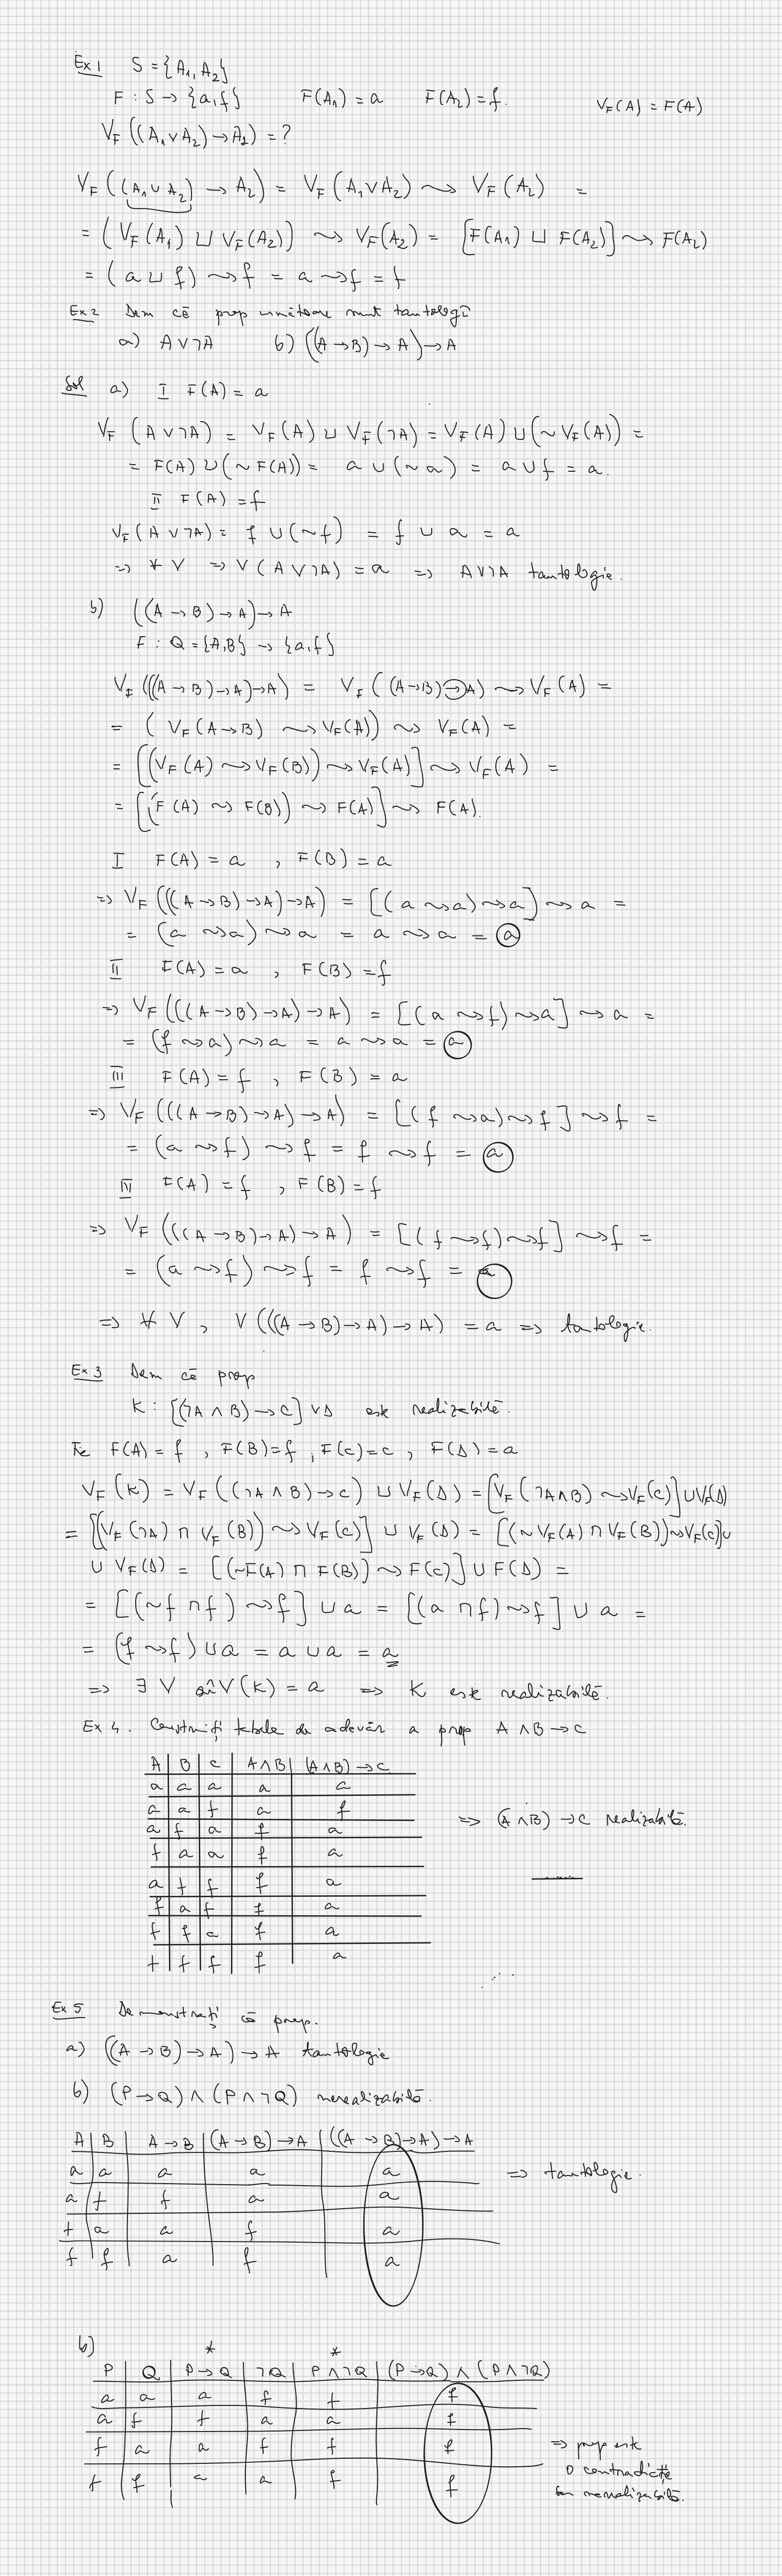 Ex 1 S = {A₁, A₂}
F : S → {a, f} F(A₁) = a F(A₂) = f. V_F(A) = F(A)
V_F ((A₁ ∨ A₂) → A₂) = ?
V_F ((A₁ ∨ A₂) → A₂) = V_F (A₁ ∨ A₂) ⇝ V_F (A₂) =
= (V_F(A₁) ⊔ V_F(A₂)) ⇝ V_F(A₂) = [F(A₁) ⊔ F(A₂)] ⇝ F(A₂)
= (a ⊔ f) ⇝ f = a ⇝ f = f
Ex 2 Dem că prop următoare sunt tautologii
a) A ∨ ¬A b) ((A → B) → A) → A
Sol a) I F(A) = a
V_F (A ∨ ¬A) = V_F(A) ∪ V_F(¬A) = V_F(A) ∪ (~ V_F(A)) =
= F(A) ∪ (~ F(A)) = a ∪ (~ a) = a ∪ f = a.
II F(A) = f
V_F (A ∨ ¬A) = f ∪ (~ f) = f ∪ a = a
⇒ ∀ V ⇒ V (A ∨ ¬A) = a ⇒ A ∨ ¬A tautologie.
b) ((A → B) → A) → A
F : Q = {A, B} → {a, f}
V_F (((A → B) → A) → A) = V_F ((A → B) → A) ⇝ V_F (A) =
= (V_F (A → B) ⇝ V_F(A)) ⇝ V_F(A) =
= [(V_F (A) ⇝ V_F(B)) ⇝ V_F(A)] ⇝ V_F(A) =
= [(F(A) ⇝ F(B)) ⇝ F(A)] ⇝ F(A).
I F(A) = a , F(B) = a
⇒ V_F (((A → B) → A) → A) = [(a ⇝ a) ⇝ a] ⇝ a =
= (a ⇝ a) ⇝ a = a ⇝ a = a
II F(A) = a , F(B) = f
⇒ V_F (((A → B) → A) → A) = [(a ⇝ f) ⇝ a] ⇝ a =
= (f ⇝ a) ⇝ a = a ⇝ a = a
III F(A) = f , F(B) = a
⇒ V_F (((A → B) → A) → A) = [(f ⇝ a) ⇝ f] ⇝ f =
= (a ⇝ f) ⇝ f = f ⇝ f = a
IV F(A) = f , F(B) = f
⇒ V_F (((A → B) → A) → A) = [(f ⇝ f) ⇝ f] ⇝ f =
= (a ⇝ f) ⇝ f = f ⇝ f = a
⇒ ∀ V , V (((A → B) → A) → A) = a ⇒ tautologie.
Ex 3 Dem că prop
K : [(¬A ∧ B) → C] ∨ Δ este realizabilă.
Fie F(A) = f , F(B) = f , F(C) = c , F(Δ) = a
V_F (K) = V_F ((¬A ∧ B) → C) ∪ V_F (Δ) = [V_F (¬A ∧ B) ⇝ V_F(C)] ∪ V_F(Δ)
= [(V_F (¬A) ∩ V_F (B)) ⇝ V_F (C)] ∪ V_F (Δ) = [(~ V_F(A) ∩ V_F(B)) ⇝ V_F(C)] ∪
∪ V_F (Δ) = [(~F(A) ∩ F(B)) ⇝ F(C)] ∪ F(Δ) =
= [(~f ∩ f) ⇝ f] ∪ a = [(a ∩ f) ⇝ f] ∪ a =
= (f ⇝ f) ∪ a = a ∪ a = a
⇒ ∃ V aî V(K) = a ⇒ K este realizabilă.
Ex 4. Construiți tabela de adevăr a prop A ∧ B → C
A B C A ∧ B (A ∧ B) → C
a a a a a
a a f a f ⇒ (A ∧ B) → C realizabilă.
a f a f a
f a a f a
a f f f a
f a f f a
f f a f a
f f f f a
Ex 5 Demonstrați că prop.
a) ((A → B) → A) → A tautologie
b) (P → Q) ∧ (P ∧ ¬Q) nerealizabilă.
A B A → B (A → B) → A ((A → B) → A) → A
a a a a a ⇒ tautologie.
a f f a a
f a a f a
f f a f a
b) * *
P Q P → Q ¬Q P ∧ ¬Q (P → Q) ∧ (P ∧ ¬Q)
a a a f f f
a f f a a f
f a a f f f ⇒ prop este
o contradicție
f f a a f f
sau nerealizabilă.